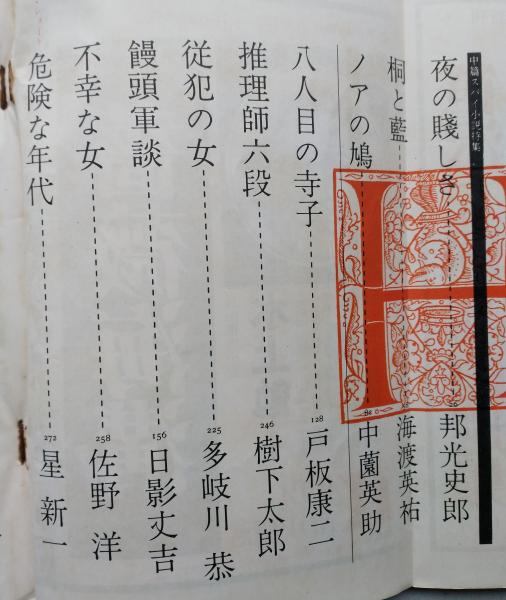 中篇スパイ小説特集
夜の賤しさ 邦光史郎
桐と藍 海渡英祐
ノアの鳩 中薗英助
八人目の寺子 128 戸板康二
推理師六段 246 樹下太郎
従犯の女 225 多岐川 恭
饅頭軍談 156 日影丈吉
不幸な女 258 佐野 洋
危険な年代 272 星 新一